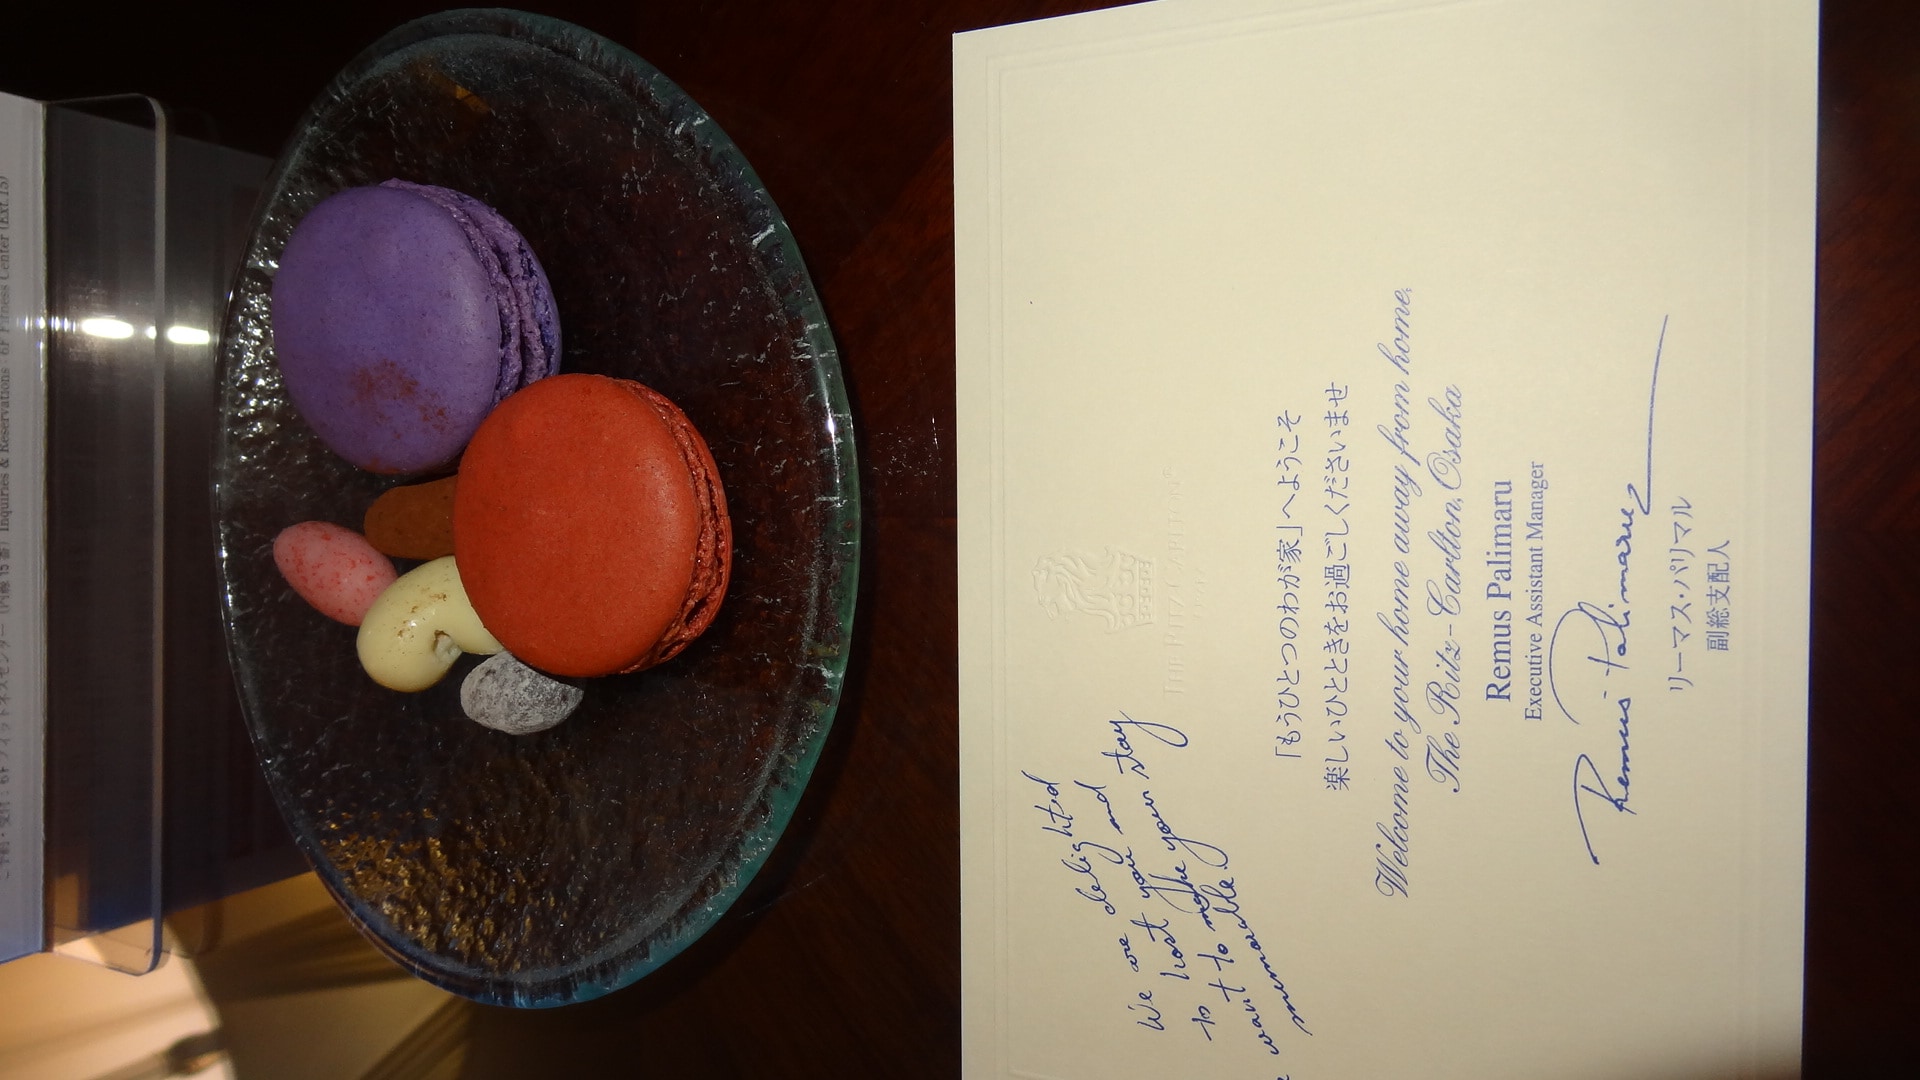 We are delighted
to host you and
want to make your stay
memorable.
THE RITZ-CARLTON
「もうひとつのわが家」へようこそ
楽しいひとときをお過ごしくださいませ
Welcome to your home away from home.
The Ritz-Carlton, Osaka
Remus Palimaru
Executive Assistant Manager
Remus Palimaru
リーマス・パリマル
副総支配人
Inquiries & Reservations : 6F Fitness Center (Ext.15)